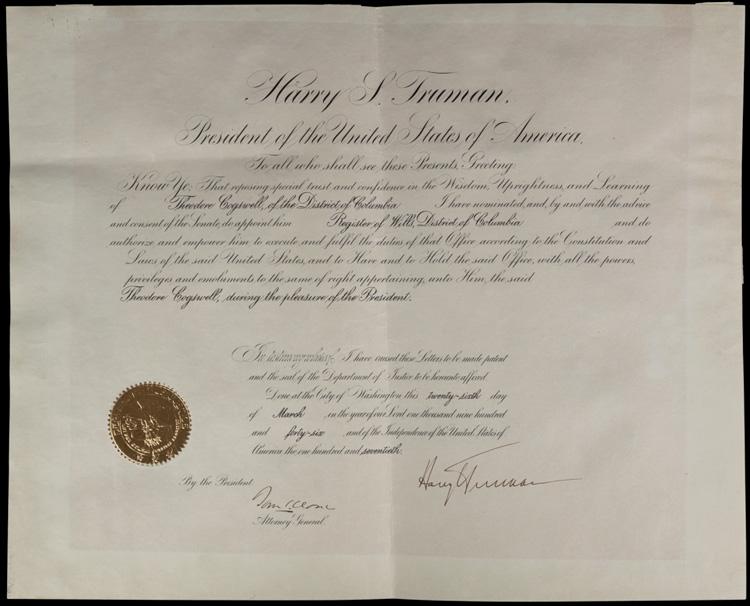 Harry S. Truman,
President of the United States of America,
To all who shall see these Presents, Greeting:
Know Ye: That reposing special trust and confidence in the Wisdom, Uprightness, and Learning
of Theodore Cogswell, of the District of Columbia I have nominated, and, by and with the advice
and consent of the Senate, do appoint him Register of Wills, District of Columbia and do
authorize and empower him to execute and fulfil the duties of that Office according to the Constitution and
Laws of the said United States, and to Have and to Hold the said Office, with all the powers,
privileges and emoluments to the same of right appertaining, unto Him, the said
Theodore Cogswell, during the pleasure of the President.
In testimony whereof, I have caused these Letters to be made patent
and the seal of the Department of Justice to be hereunto affixed.
Done at the City of Washington this twenty-sixth day
of March, in the year of our Lord one thousand nine hundred
and forty-six, and of the Independence of the United States of
America the one hundred and seventieth.
By the President:
Harry S Truman
Tom C. Clark
Attorney General.